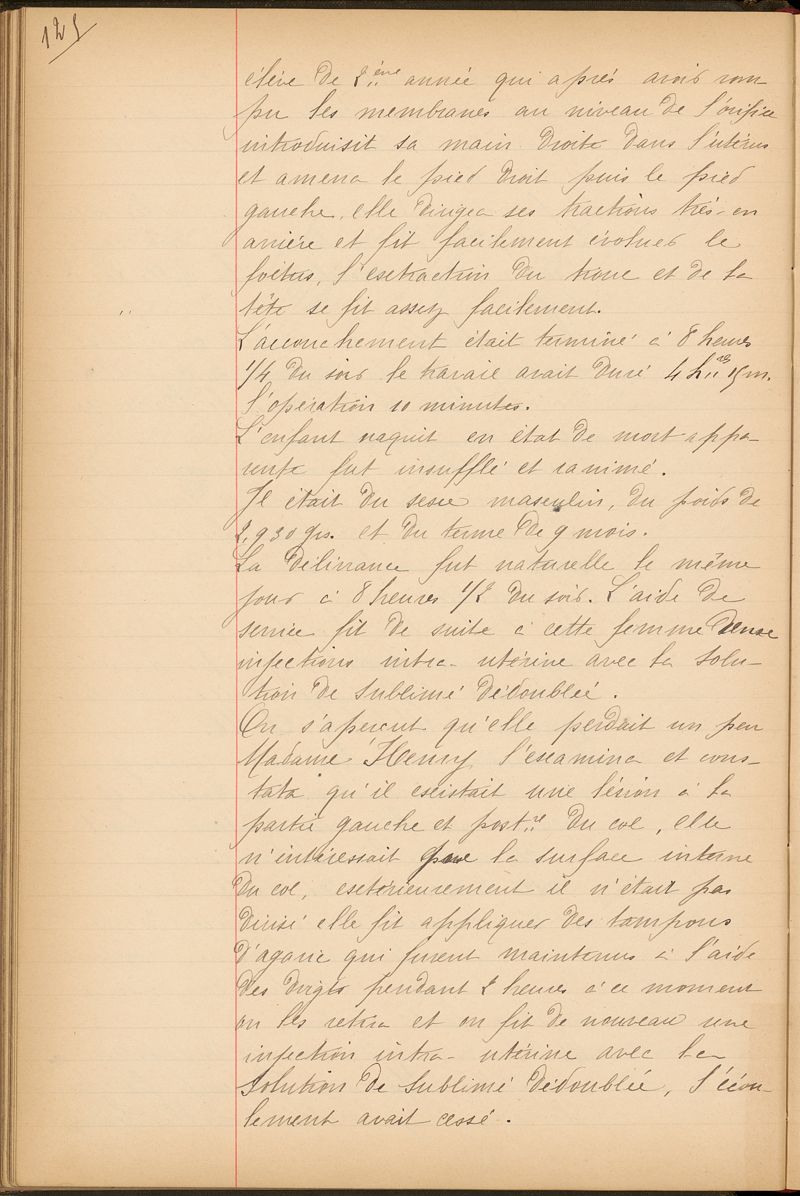 125
élève de 2ème année qui après avoir rom-
pu les membranes au niveau de l'orifice
introduisit sa main droite dans l'utérus
et amena le pied droit puis le pied
gauche, elle dirigea ses tractions très en
arrière et fit facilement évoluer le
foetus, l'extraction du tronc et de la
tête se fit assez facilement.
L'accouchement était terminé à 8 heures
1/4 du soir le travail avait duré 4 hres 15 m.
l'opération 10 minutes.
L'enfant naquit en état de mort appa-
rente fut insufflé et ranimé.
Il était du sexe masculin, du poids de
2,930 grs. et du terme de 9 mois.
La délivrance fut naturelle le même
jour à 8 heures 1/2 du soir. L'aide de
service fit de suite à cette femme
injections intra-utérine avec la solu-
tion de sublimé dédoublée.
On s'aperçut qu'elle perdait un peu
Madame Henry l'examina et cons-
tata qu'il existait une lésion à la
partie gauche et postre du col, elle
n'intéressait que la surface interne
du col, extérieurement il n'était pas
divisé elle fit appliquer des tampons
d'agaric qui furent maintenus à l'aide
des doigts pendant 2 heures à ce moment
on les retira et on fit de nouveau une
injection intra-utérine avec la
solution de sublimé dédoublée, l'écou-
lement avait cessé.